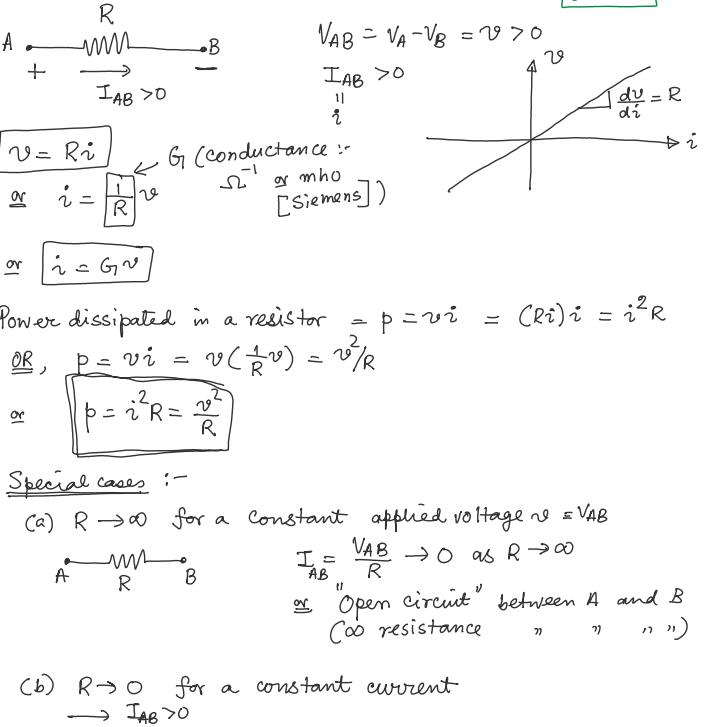 R
A B
+ −
I_AB > 0
V_AB = V_A − V_B = v > 0
I_AB > 0
"
i
v
dv/di = R
i
v = Ri
or i = 1/R v
G (conductance :-
Ω⁻¹ or mho
[Siemens])
or i = Gv
Power dissipated in a resistor = p = vi = (Ri)i = i²R
OR, p = vi = v(1/R v) = v²/R
or p = i²R = v²/R
Special cases :-
(a) R → ∞ for a constant applied voltage v = V_AB
A R B
I_AB = V_AB/R → 0 as R → ∞
or "Open circuit" between A and B
(∞ resistance " " " ")
(b) R → 0 for a constant current
→ I_AB > 0